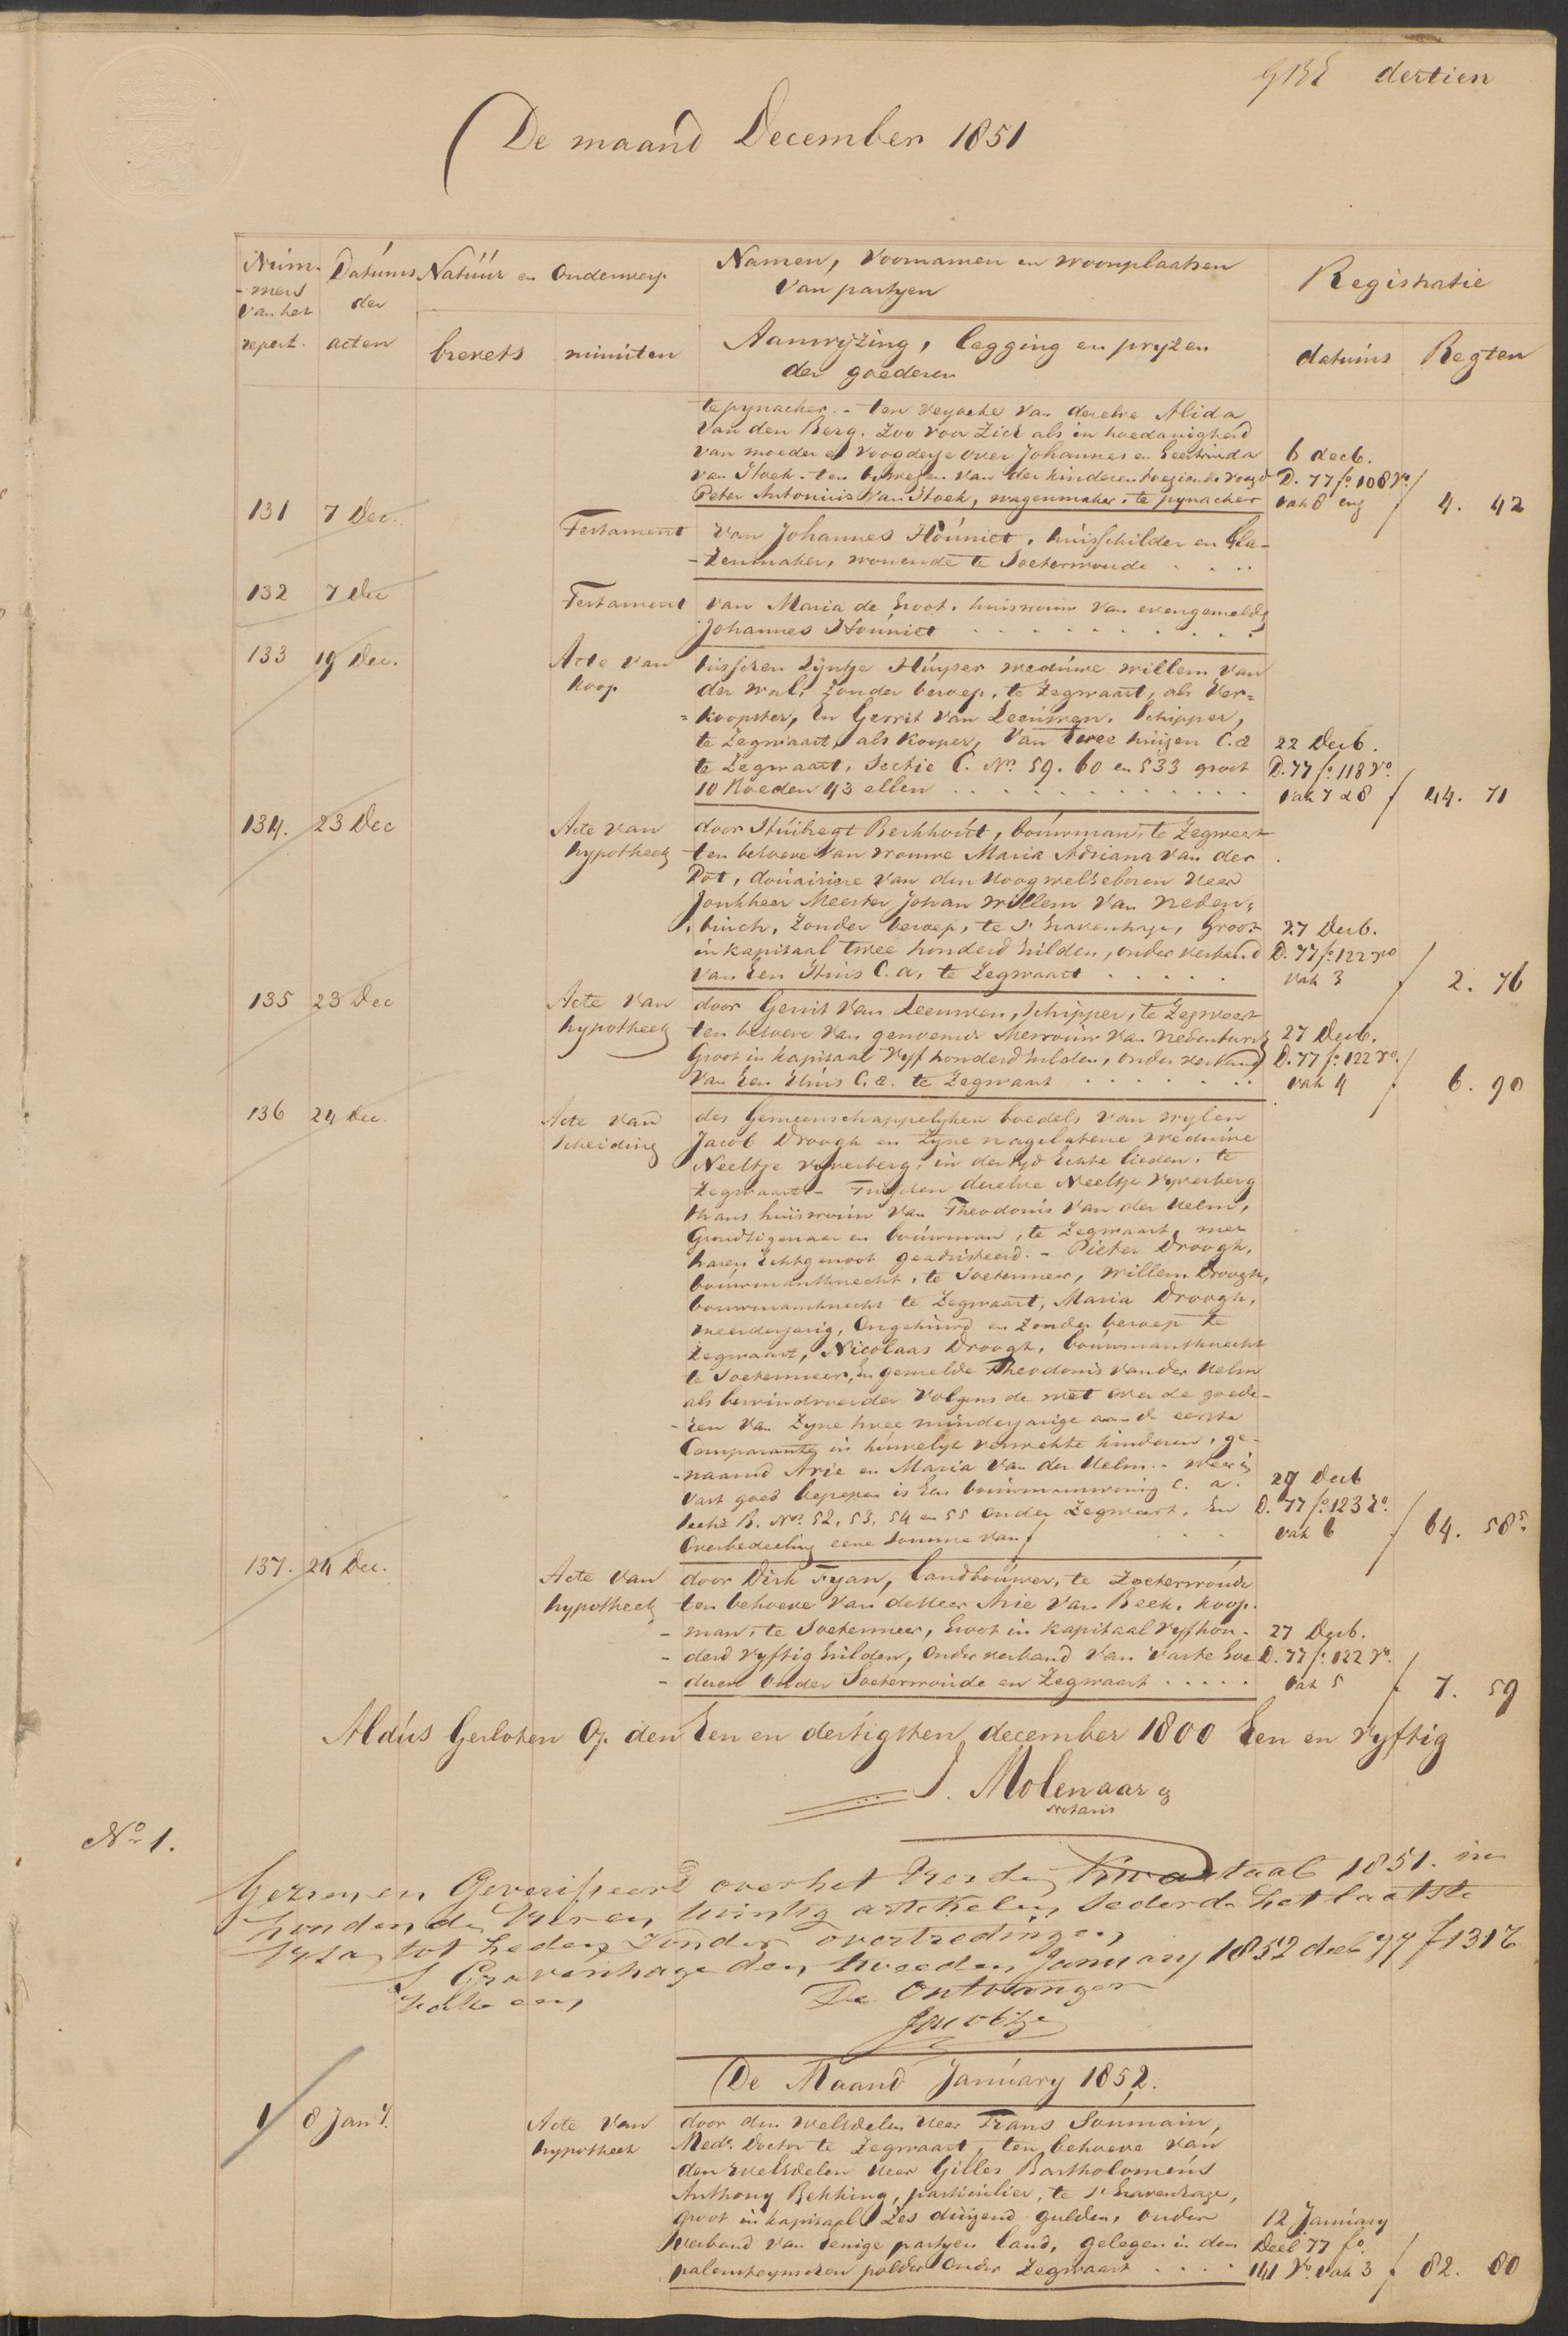 dertien
De maand December 1851
Num- Datums Natuur en Onderwerp Namen, voornamen en woonplaatsen Registratie
-mers der van partyen
van het
repert. acten brevets minuten Aanwyzing, legging en pryzen datums Regten
der goederen
te pynacker. - ten verzoeke van dezelve Alida
van den Berg. Zoo voor Zich als in hoedanigheid
van moeder en voogdesse over Johannes en Geertruida 6 decb.
van Stoek. ten bywezen van der kinderen toeziende voogd D. 77 fo. 108 Vo.
Peter Antonius van Stoek, wagenmaker, te pynacker vak 8 enz f 4. 42
131 7 Dec. Testament van Johannes Hoúniet, huisschilder en Gla-
-zenmaker, wonende te Soeterwoude . . . .
132 7 Dec Testament van Maria de Groot, huisvrouw van evengemelde
Johannes Hoúniet . . . . . . . . . . .
133 19 Dec. Acte van tusschen Lijntje Húyser weduwe willem van
koop der wal, zonder beroep, te Zegwaart, als Ver=
=koopster, En Gerrit van Leeuwen, Schipper,
te Zegwaart, als Kooper, Van twee huizen C.a 22 Decb.
te Zegwaart, Sectie C. No. 59. 60 en 533 groot D. 77 fo. 118 Vo.
10 Roeden 43 ellen . . . . . . . . . . . . vak 7 & 8 f 44. 71
134. 23 Dec Acte van door Huibregt Berkhout, bouwman, te Zegwaart
hypotheek ten behoeve van vrouwe Maria Adriana van der
Pot, douairiere van den Hoog welgeboren Heer
Jonkheer Meester Johan willem van neden-
burch, zonder beroep, te s' Gravenhage, Groot 27 Decb.
in kapitaal twee honderd Gulden, onder verband D. 77 fo. 122 ro
van Een Huis C.a, te Zegwaart . . . . . vak 3 f 2. 76
135 23 Dec Acte van door Gerrit van Leeuwen, schipper, te Zegwaart
hypotheek ten behoeve van genoemde Mevrouw van nedenburch 27 Decb.
Groot in kapitaal vyf honderd Gulden, onder verband D. 77 fo. 122 ro.
van Een Huis C.a. te Zegwaart . . . . . . . vak 4 f 6. 90
136 24 Dec. Acte van des Gemeenschappelyken boedels van wylen
Scheiding Jacob Droogh en Zyne nagelatene weduwe
Neeltje vyverberg, in der tyd Echte lieden, te
Zegwaart. - Tusschen dezelve Neeltje Vyverberg
thans huisvrouw van Theodorus van der Helm,
Grondeigenaar en bouwman, te Zegwaart, met
haren Echtgenoot geadsisteerd. - Pieter Droogh,
bouwmansknecht, te Soetermeer, willem Droogh,
bouwmansknecht te Zegwaart, Maria Droogh,
meerderjarig, Ongehuwd en zonder beroep te
Zegwaart, Nicolaas Droogh, bouwmansknecht
te Soetermeer, En gemelde Theodorus van der Helm
als bewindvoerder volgens de wet over de goede-
-ren van Zyne twee minderjarige aan de eerste
Comparante in huwelyk verwekte kinderen, ge-
-naamd Arie en Maria van der Helm. - waar in
vast goed begrepen is Een bouwmanswoning C. a. 29 Decb
Sectie B. Nos. 52, 53, 54 en 55 onder Zegwaart, En D. 77 fo. 123 Ro.
Overbedeeling eene Somme van f . . . vak 6 f 64. 585
137. 24 Dec. Acte van door Dirk Tyan, landbouwer, te Zoeterwoude
hypotheek ten behoeve van de Heer Arie van Beek, koop-
-man, te Soetermeer, Groot in kapitaal vyfhon- 27 Decb.
-derd vyftig Gulden, Onder verband van vaste Goe D. 77 fo. 122 Vo.
-deren onder Soeterwoude en Zegwaart . . . . . vak 5 f 7. 59
Aldus Gesloten Op den Een en dertigsten december 1800 Een en vyftig
J. Molenaar
notaris
No. 1.
Gezien en Geverifieerd over het vierde Kwartaal 1851. in
houdende Vier en twintig artikelen sedert het laatste
Visa tot heden zonder overtredingen
S Gravenhage den tweeden January 1852 deel 77 f 131
vak een
De Ontvanger
De Maand January 1852.
1 8 Jany. Acte van door den welEdelen Heer Frans Soumain,
hypotheek Medc. Doctor te Zegwaart, ten behoeve van
den welEdelen Heer Gilles Bartholomeus
Anthony Bekking, particulier, te s' Gravenhage,
groot in kapitaal Zes duizend gulden, onder 12 January
verband van Eenige partyen land, gelegen in den Deel 77 fo.
palensteynschen polder onder Zegwaart . . . . 141 Vo. vak 3 f 82. 80